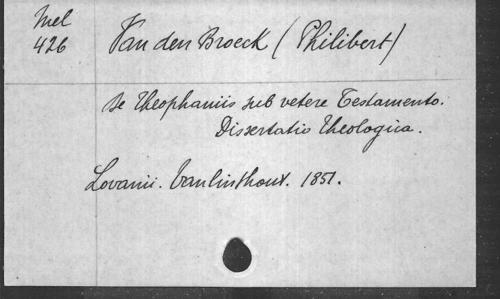 Mel
426
Van den Broeck (Philibert)
De Theophaniis sub vetere Testamento.
Dissertatio Theologica.
Lovanii. Vanlinthout. 1851.